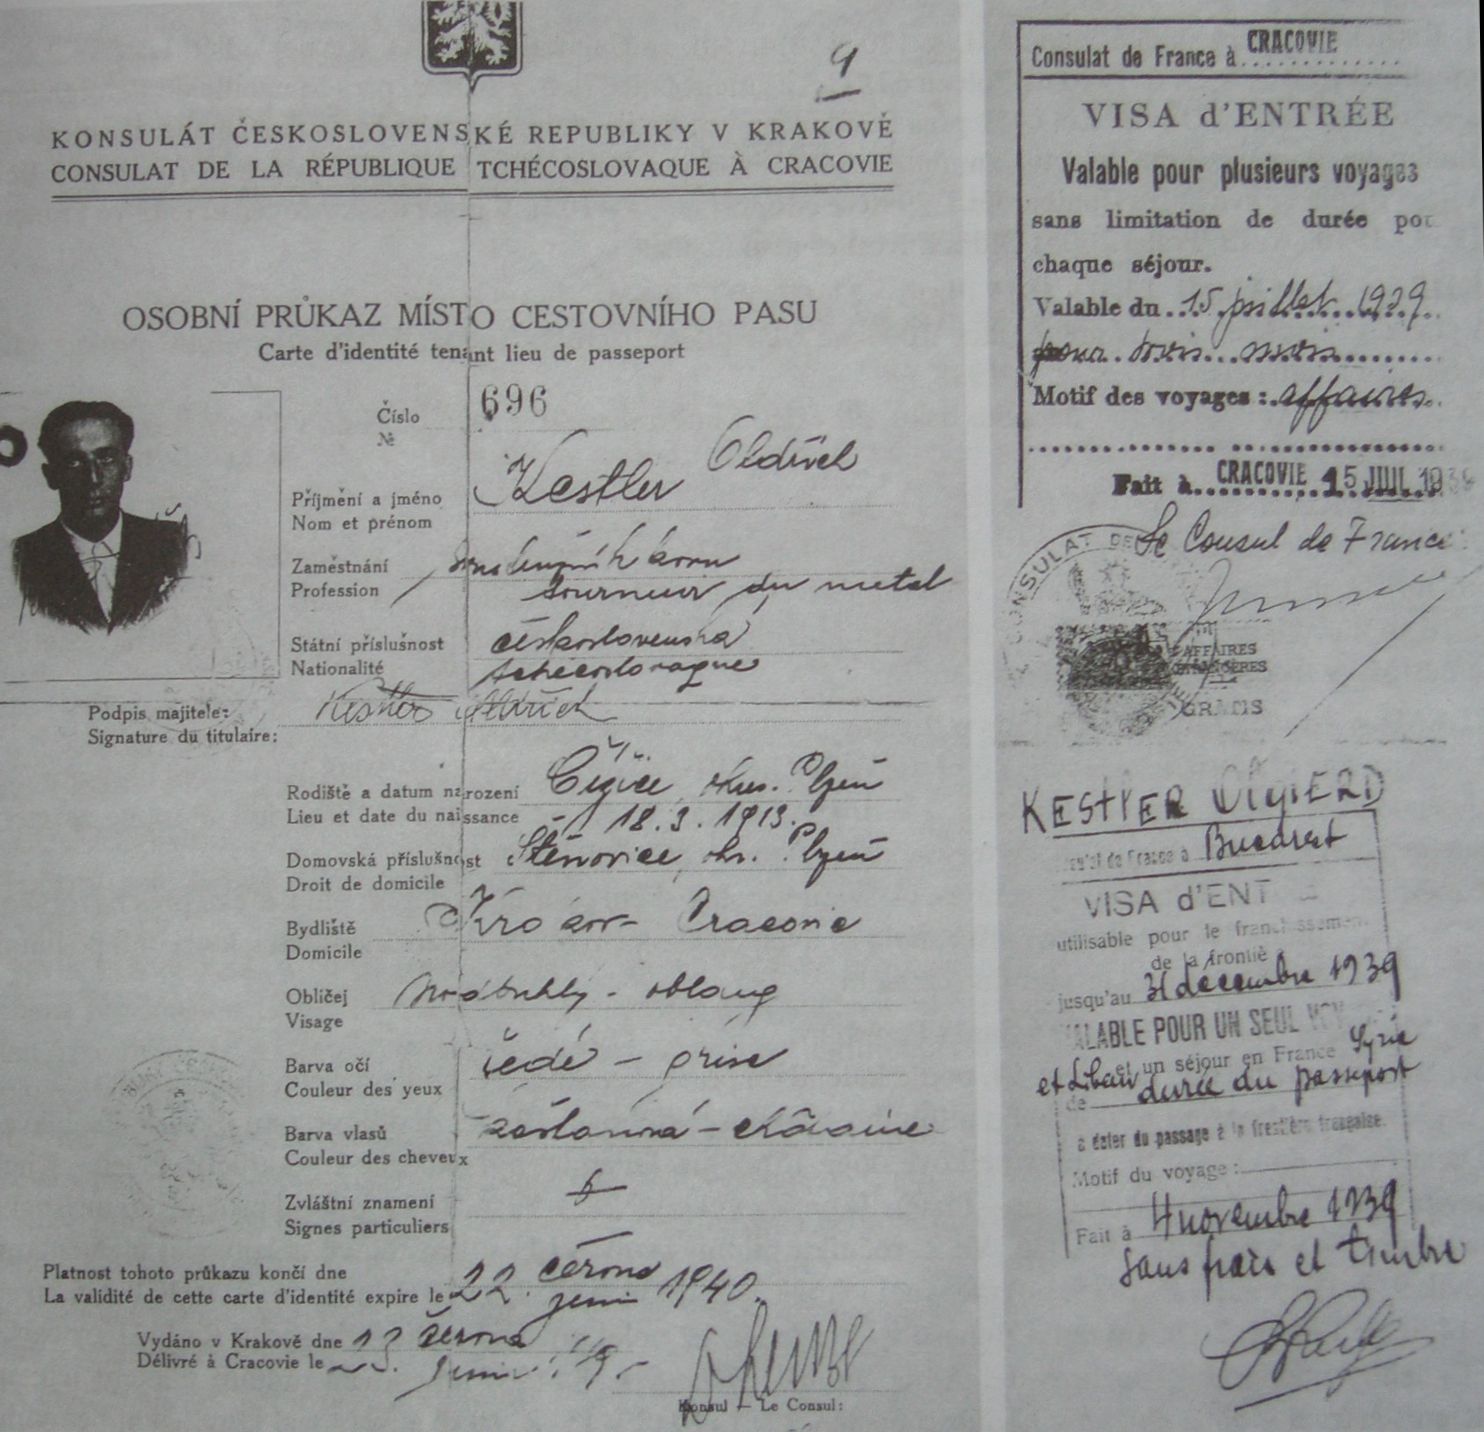 9
KONSULÁT ČESKOSLOVENSKÉ REPUBLIKY V KRAKOVĚ
CONSULAT DE LA RÉPUBLIQUE TCHÉCOSLOVAQUE À CRACOVIE
OSOBNÍ PRŮKAZ MÍSTO CESTOVNÍHO PASU
Carte d'identité tenant lieu de passeport
Číslo 696
№
Příjmení a jméno Kestler Oldřich
Nom et prénom
Zaměstnání
Profession tourneur du metal
Státní příslušnost československá
Nationalité tchécoslovaque
Podpis majitele: Kestler Oldřich
Signature du titulaire:
Rodiště a datum narození Čižice, okres. Plzeň
Lieu et date du naissance 18. 3. 1913.
Domovská příslušnost Štěnovice, okr. Plzeň
Droit de domicile
Bydliště Krakov - Cracovie
Domicile
Obličej - oblong
Visage
Barva očí šedé - grise
Couleur des yeux
Barva vlasů kaštanová -
Couleur des cheveux
Zvláštní znamení
Signes particuliers
Platnost tohoto průkazu končí dne
La validité de cette carte d'identité expire le 22. června juin 1940.
Vydáno v Krakově dne června
Délivré à Cracovie le 23. juin
Konsul — Le Consul:
Consulat de France à CRACOVIE
VISA d'ENTRÉE
Valable pour plusieurs voyages
sans limitation de durée pour
chaque séjour.
Valable du 15 juillet 1939
pour trois mois
Motif des voyages: affaires
Fait à CRACOVIE 15 JUIL 1939
Le Consul de France
CONSULAT DE
AFFAIRES
ETRANGERES
GRATIS
KESTLER OLGIERD
Consulat de France à Bucarest
VISA d'ENT
utilisable pour le franchissement
de la frontière
jusqu'au 31 décembre 1939
VALABLE POUR UN SEUL VOYAGE
et un séjour en France Syrie
et Liban
de durée du passeport
à dater du passage à la frontière française.
Motif du voyage:
Fait à 4 novembre 1939
Sans frais et timbre